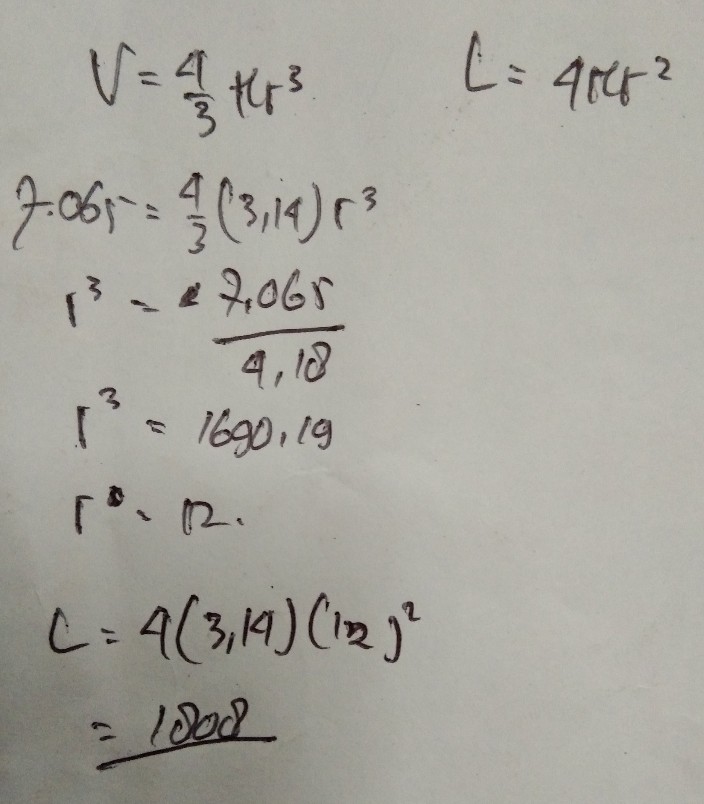 V = 4/3 πr³ L = 4πr²
7.065 = 4/3 (3,14) r³
r³ = 7.065/4,18
r³ = 1690,19
r = 12.
L = 4(3,14)(12)²
= 1808